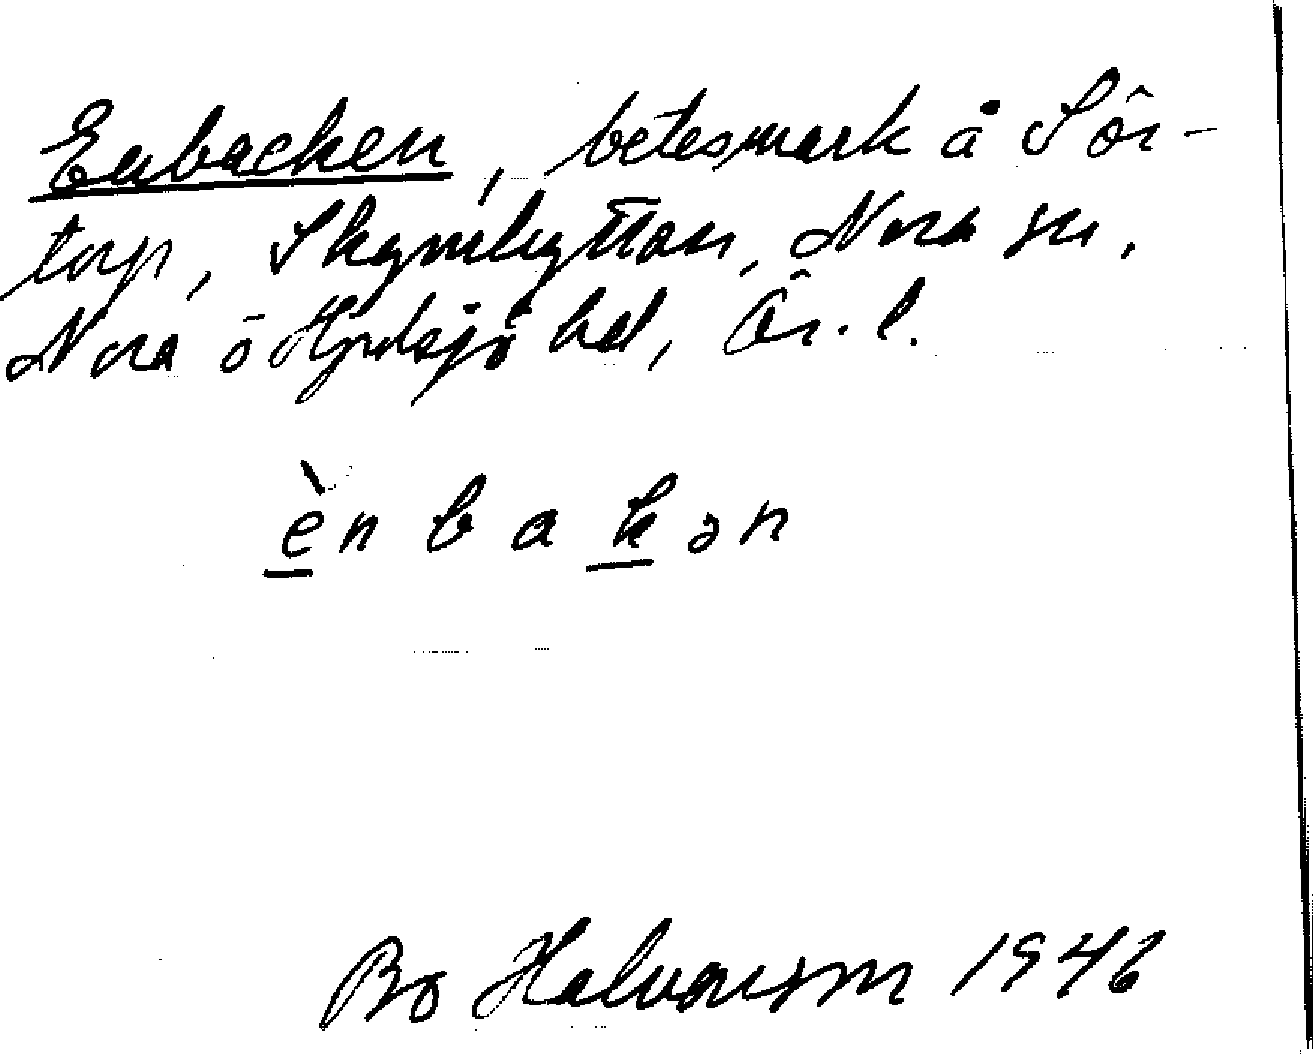 Enbacken, betesmark å Sör-
torp, Skrikarhyttan, Nora sn,
Nora o Hjulsjö bd, Ör. l.
ènbakən
Bo Halvarsson 1946